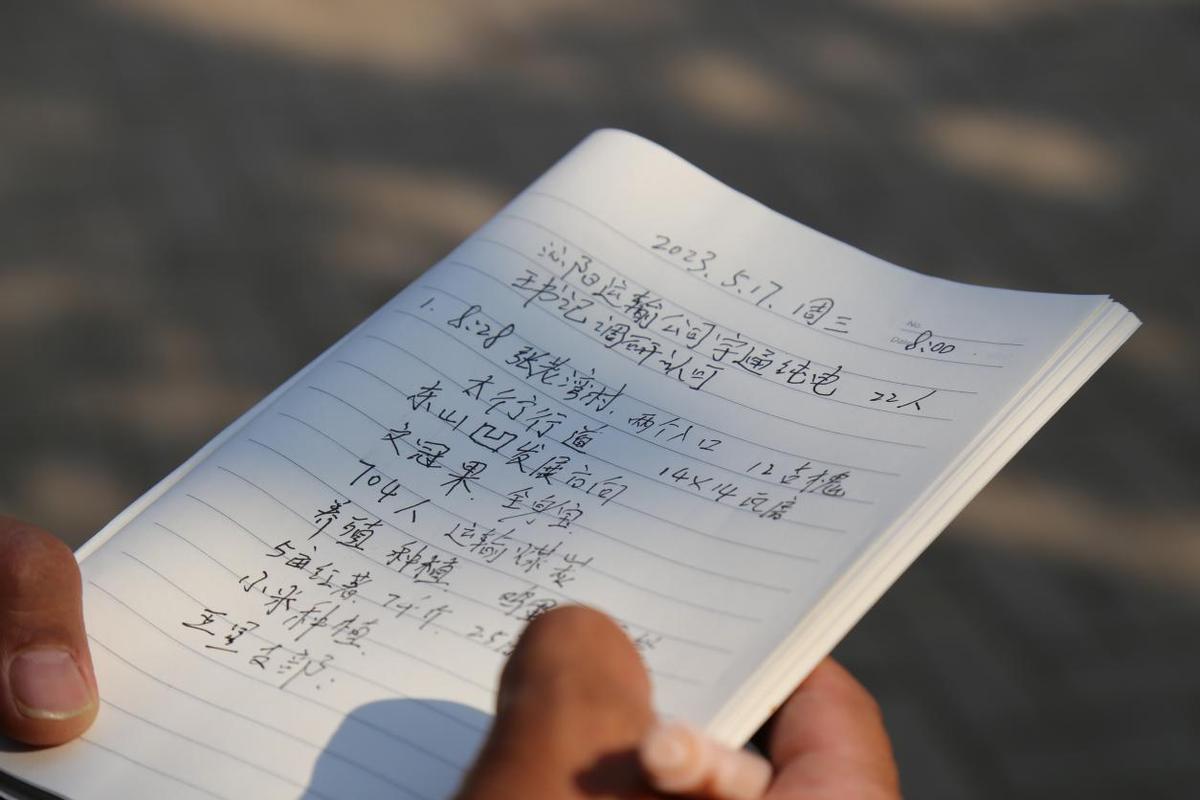 2023.5.17. 周三 8:00
沁阳运输公司宇通纯电 22人
王书记调研认可
1. 8:28 张老湾村. 两个人口 12古槐
太行行道 14×14瓦房
东山凹发展方向
文冠果. 全身宝
704人 运输煤炭
养殖 种植
5亩红薯
小米种植.
五星支部.